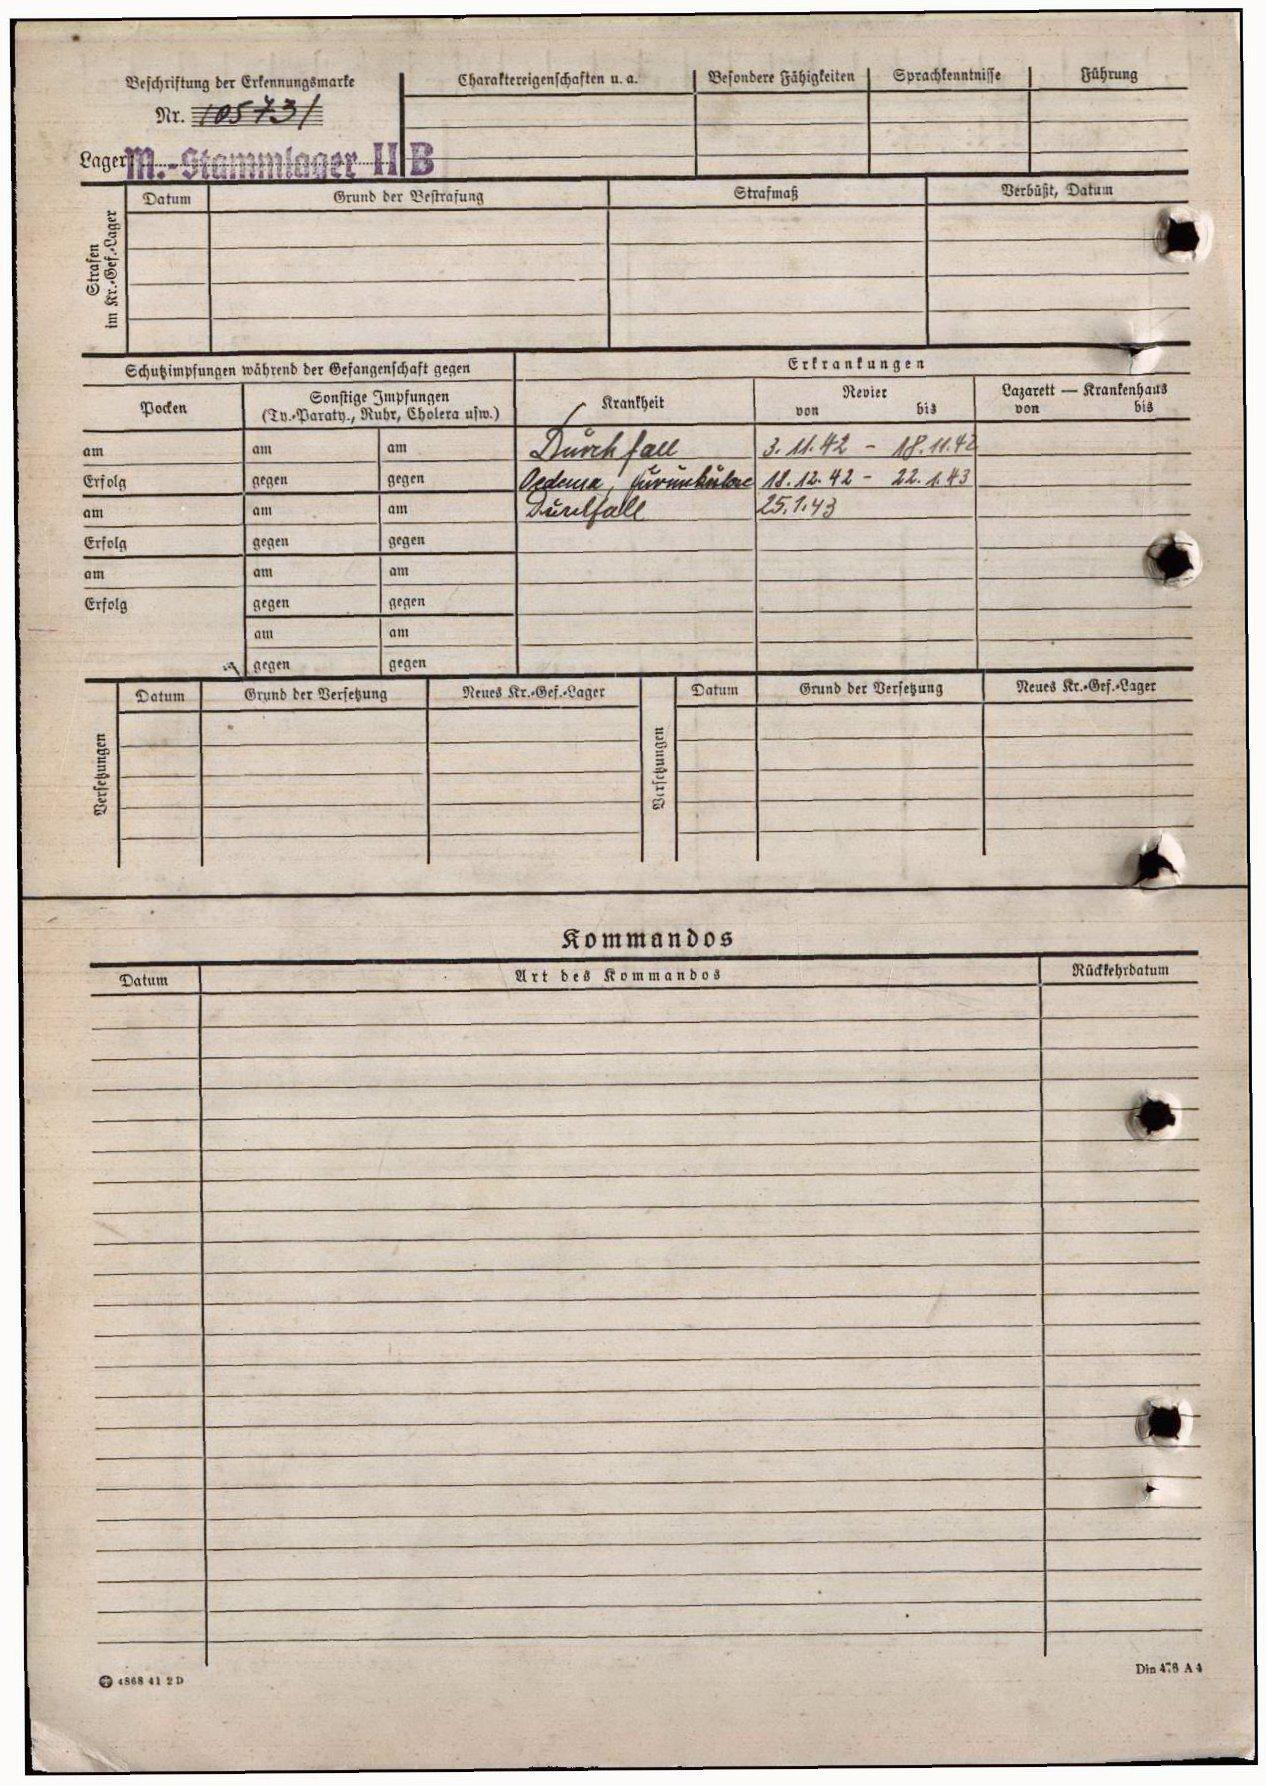 Beschriftung der Erkennungsmarke
Nr. 105731
Lager M.-Stammlager II B
Charaktereigenschaften u. a.
Besondere Fähigkeiten
Sprachkenntnisse
Führung
Strafen im Kr.-Gef.-Lager
Datum
Grund der Bestrafung
Strafmaß
Verbüßt, Datum
Schutzimpfungen während der Gefangenschaft gegen
Erkrankungen
Pocken
Sonstige Impfungen
(Ty.-Paraty., Ruhr, Cholera usw.)
Krankheit
Revier
von bis
Lazarett — Krankenhaus
von bis
am am am Durchfall 3.11.42 - 18.11.42
Erfolg gegen gegen Oedema, furunkulose 18.12.42 - 22.1.43
am am am Durchfall 25.1.43
Erfolg gegen gegen
am am am
Erfolg gegen gegen
am am
gegen gegen
Versetzungen
Datum Grund der Versetzung Neues Kr.-Gef.-Lager
Versetzungen
Datum Grund der Versetzung Neues Kr.-Gef.-Lager
Kommandos
Datum Art des Kommandos Rückkehrdatum
4868 41 2 D
Din 476 A 4